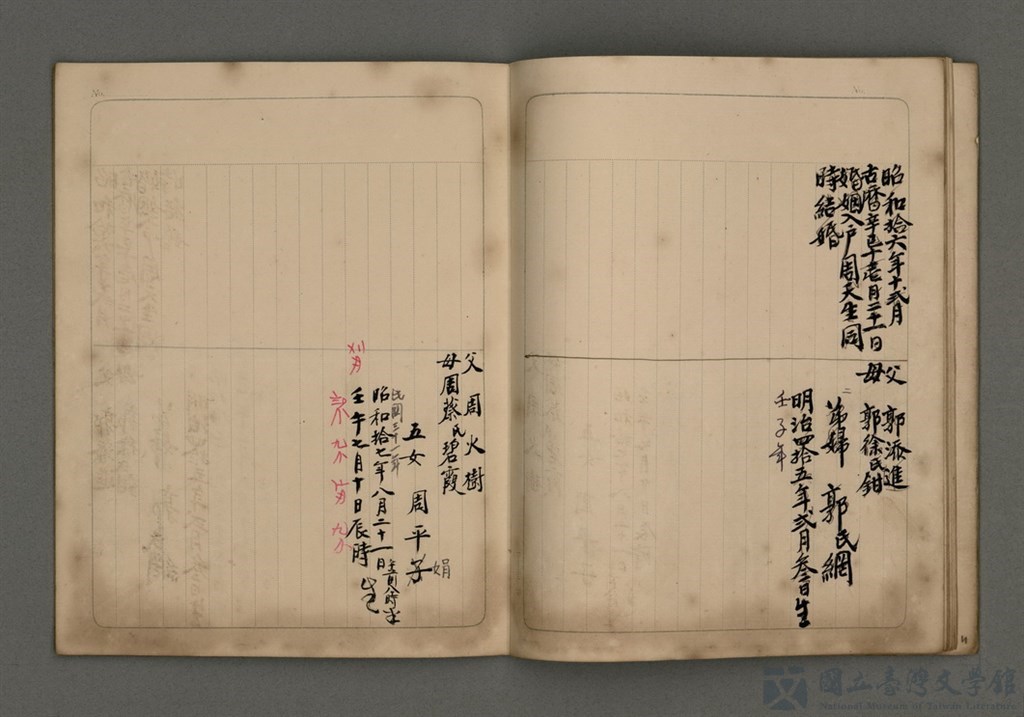 昭和拾六年十弍月
古曆辛巳十壱月二十一日
婚姻入戶周天生同
時結婚
父 郭派進
母 郭徐氏鉗
二
弟婦 郭氏網
明治四拾五年弍月叁日生
壬子年
父 周火樹
母 周蔡氏碧霞
五女 周平子
娟
民國三十一年
昭和拾七年八月二十一日
壬午七月十日辰時 生
國立臺灣文學館
National Museum of Taiwan Literature